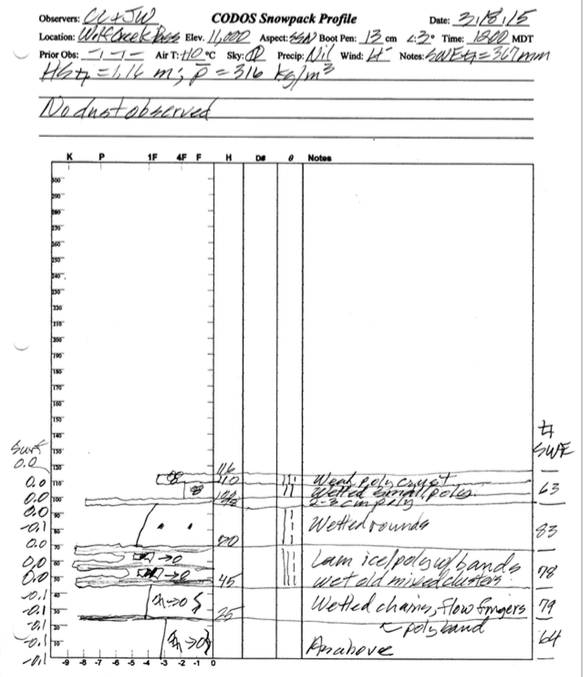 Observers: CL + JW CODOS Snowpack Profile Date: 3/18/15
Location: Wolf Creek Pass Elev. 11,000 Aspect: SSW Boot Pen: 13 cm ∠: 3° Time: 1200 MDT
Prior Obs: - / - / - Air T: +1.0 °C Sky: Precip: Nil Wind: Notes: SWE = 367 mm
HS = 1.16 m; p̄ = 316 kg/m³
No dust observed
K P 1F 4F F H D# θ Notes
300
290
280
270
260
250
240
230
220
210
200
190
180
170
160
150
140
130
SWE
Surf 0.0
120 116
0.0 110 110 Weak poly crust 63
0.0 100 Wetted small polys
0.0 90 2-3 cm poly
-0.1 80 Wetted rounds 83
0.0 70 70
0.0 60 →0 Lam ice/poly w/bands 78
0.0 50 →0 45 wet old mixed clusters
-0.1 40 →0 Wetted chains, flow fingers 79
-0.1 30 25 ← poly band
-0.1 20 →0 64
-0.1 10 As above
-9 -8 -7 -6 -5 -4 -3 -2 -1 0